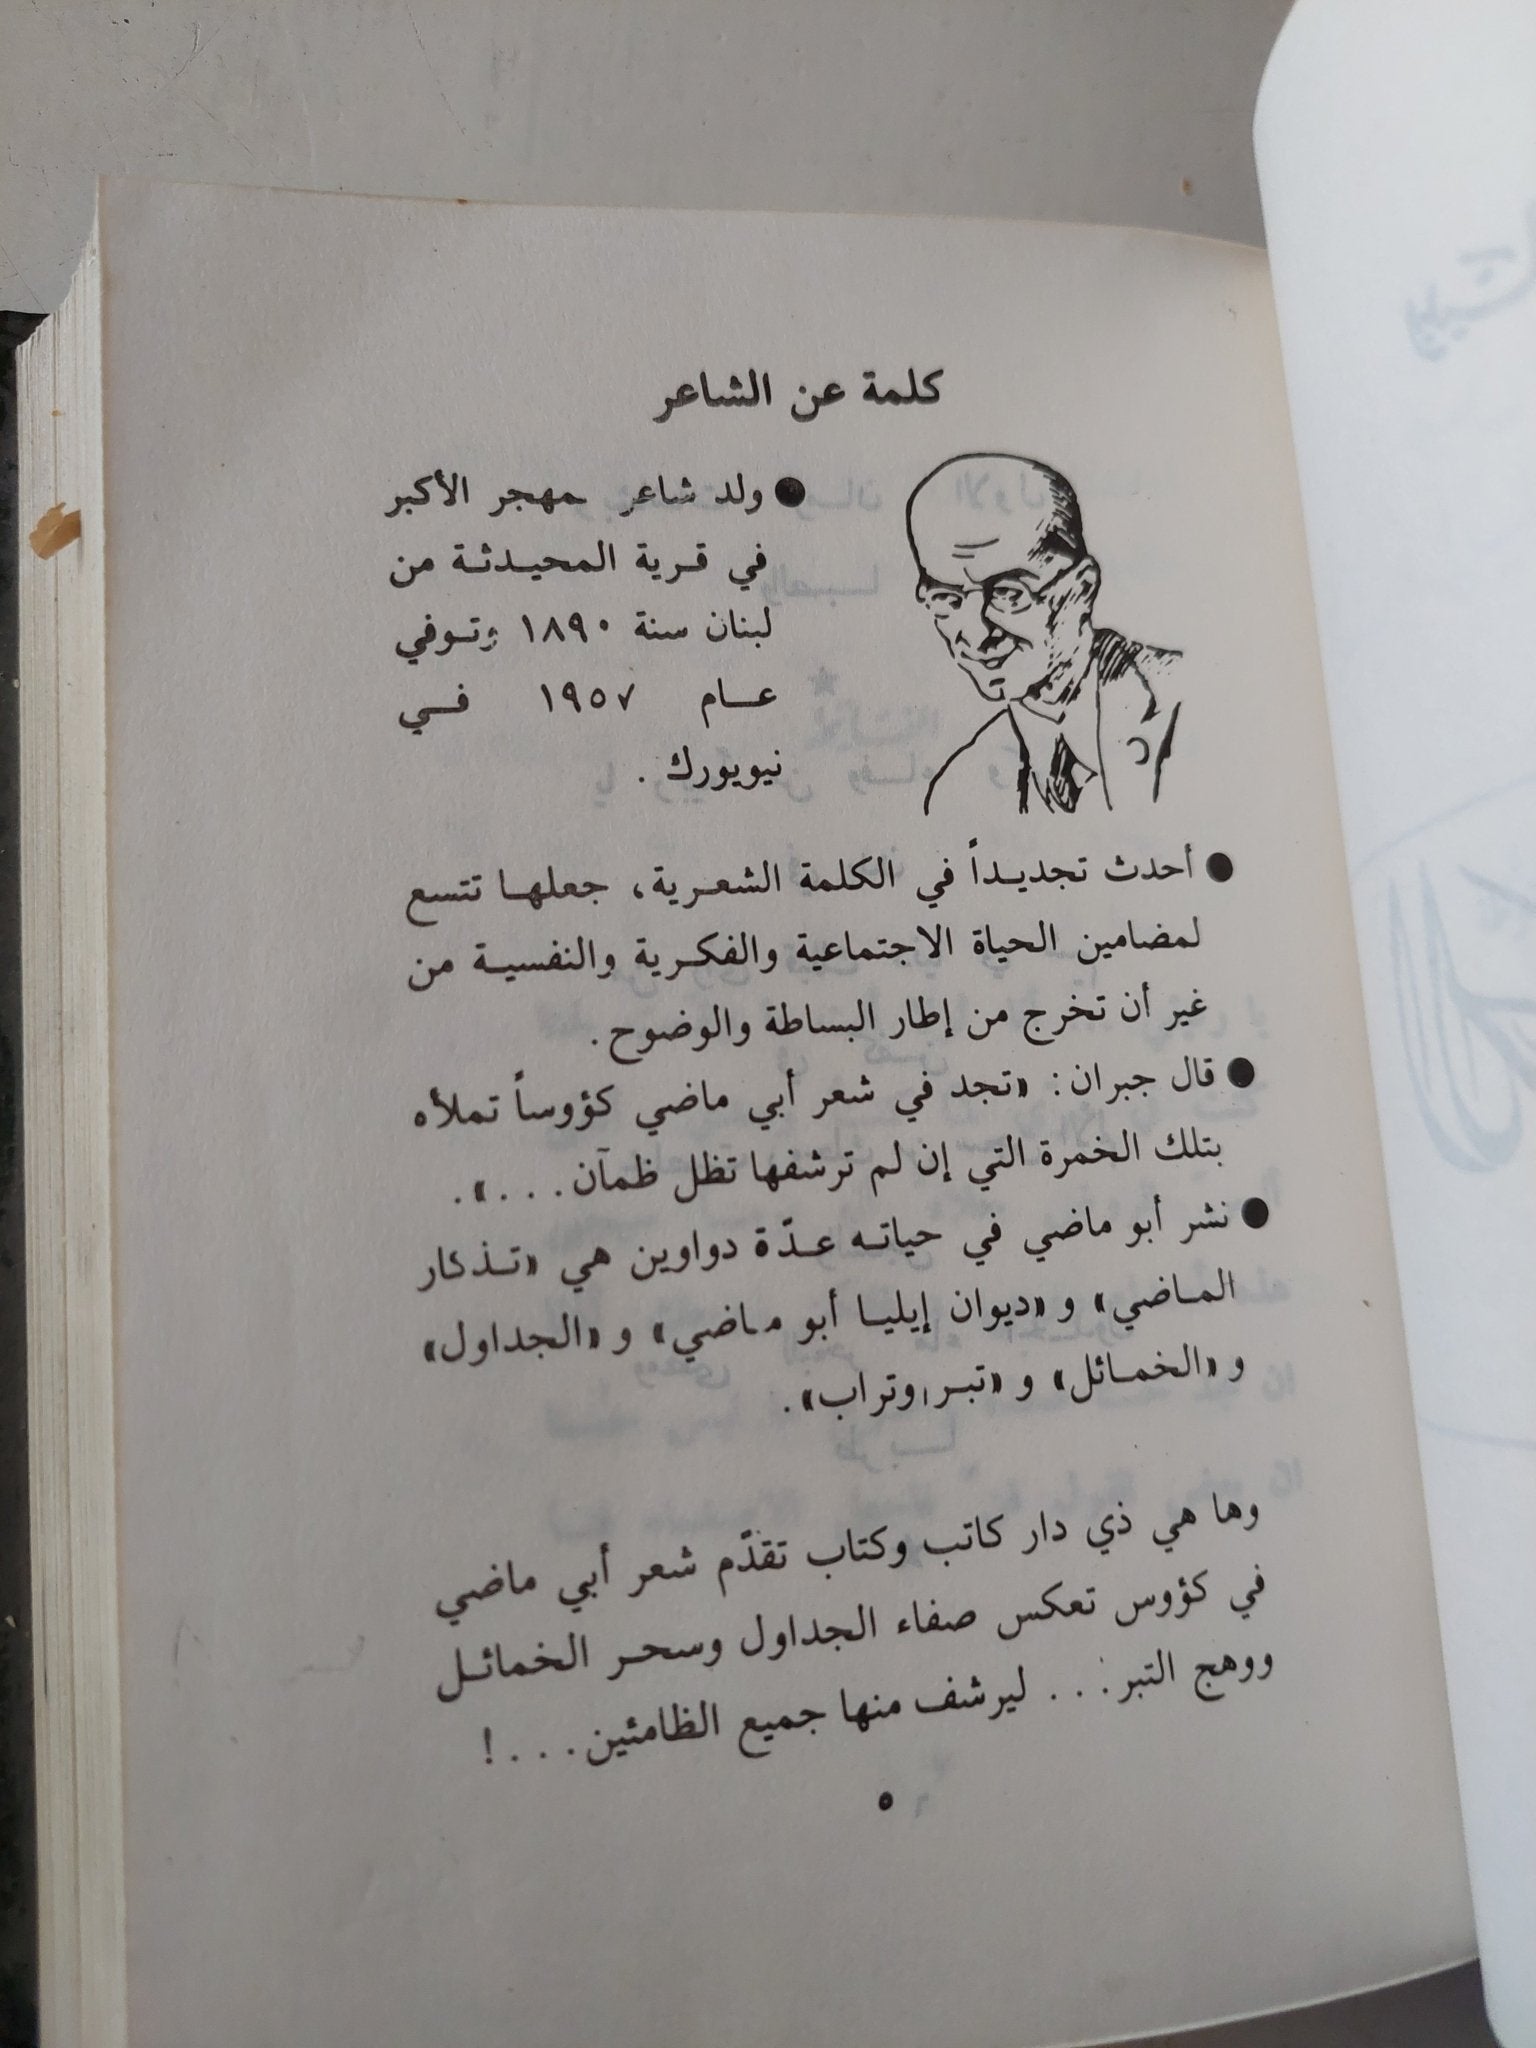 كلمة عن الشاعر
● ولد شاعر مهجر الأكبر
في قرية المحيدثة من
لبنان سنة ١٨٩٠ وتوفي
عام ١٩٥٧ في
نيويورك .
● أحدث تجديداً في الكلمة الشعرية، جعلها تتسع
لمضامين الحياة الاجتماعية والفكرية والنفسية من
غير أن تخرج من إطار البساطة والوضوح.
● قال جبران: «تجد في شعر أبي ماضي كؤوساً تملأه
بتلك الخمرة التي إن لم ترشفها تظل ظمآن...».
● نشر أبو ماضي في حياته عدّة دواوين هي «تذكار
الماضي» و «ديوان إيليا أبو ماضي» و «الجداول»
و «الخمائل» و «تبر وتراب».
وها هي ذي دار كاتب وكتاب تقدّم شعر أبي ماضي
في كؤوس تعكس صفاء الجداول وسحر الخمائل
ووهج التبر... ليرشف منها جميع الظامئين...!
٥